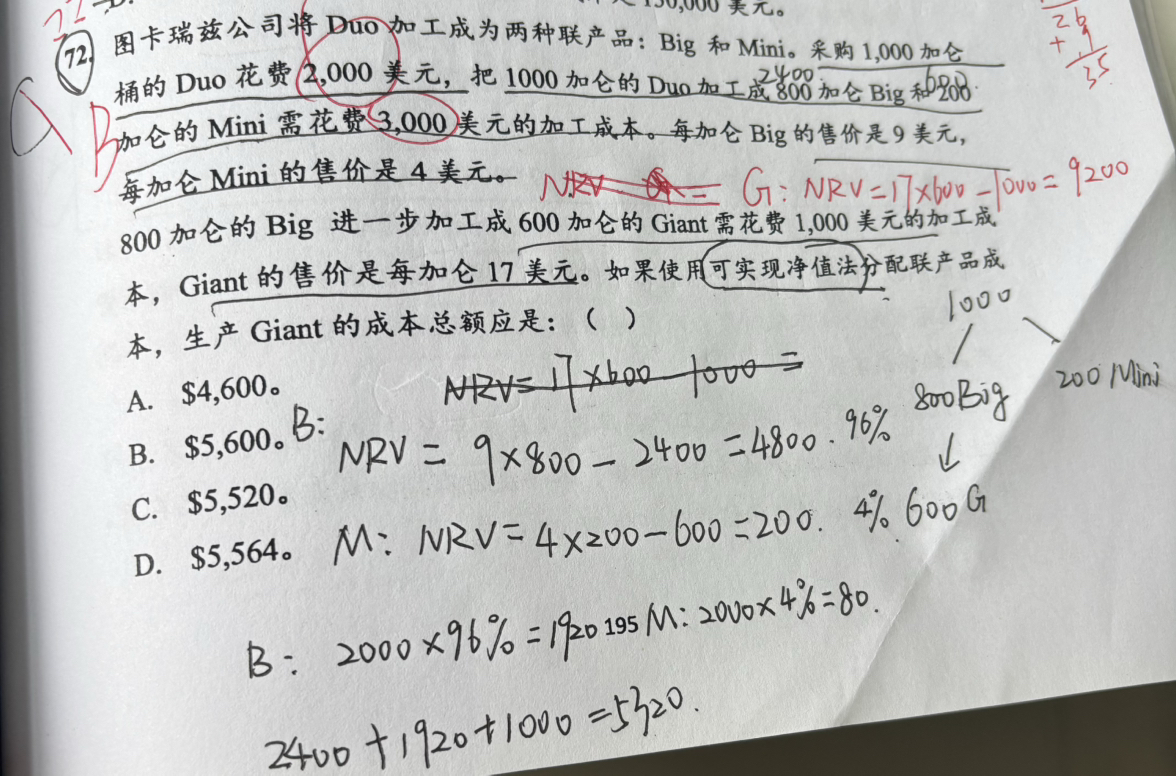 130,000 美元。
72. 图卡瑞兹公司将 Duo 加工成为两种联产品：Big 和 Mini。采购 1,000 加仑
桶的 Duo 花费 2,000 美元，把 1000 加仑的 Duo 加工成 800 加仑 Big 和 200
2400 600
加仑的 Mini 需花费 3,000 美元的加工成本。每加仑 Big 的售价是 9 美元，
B
每加仑 Mini 的售价是 4 美元。
NRV = G: NRV=17×600-1000=9200
800 加仑的 Big 进一步加工成 600 加仑的 Giant 需花费 1,000 美元的加工成
本，Giant 的售价是每加仑 17 美元。如果使用可实现净值法分配联产品成
本，生产 Giant 的成本总额应是：（ ）
A. $4,600。
B. $5,600。
C. $5,520。
D. $5,564。
NRV=17×600-1000=
B: NRV=9×800-2400=4800. 96%
M: NRV=4×200-600=200. 4%
1000
800Big
200 Mini
↓
600G
B: 2000×96%=1920 195 M: 2000×4%=80.
2400+1920+1000=5320.
26
+9
35